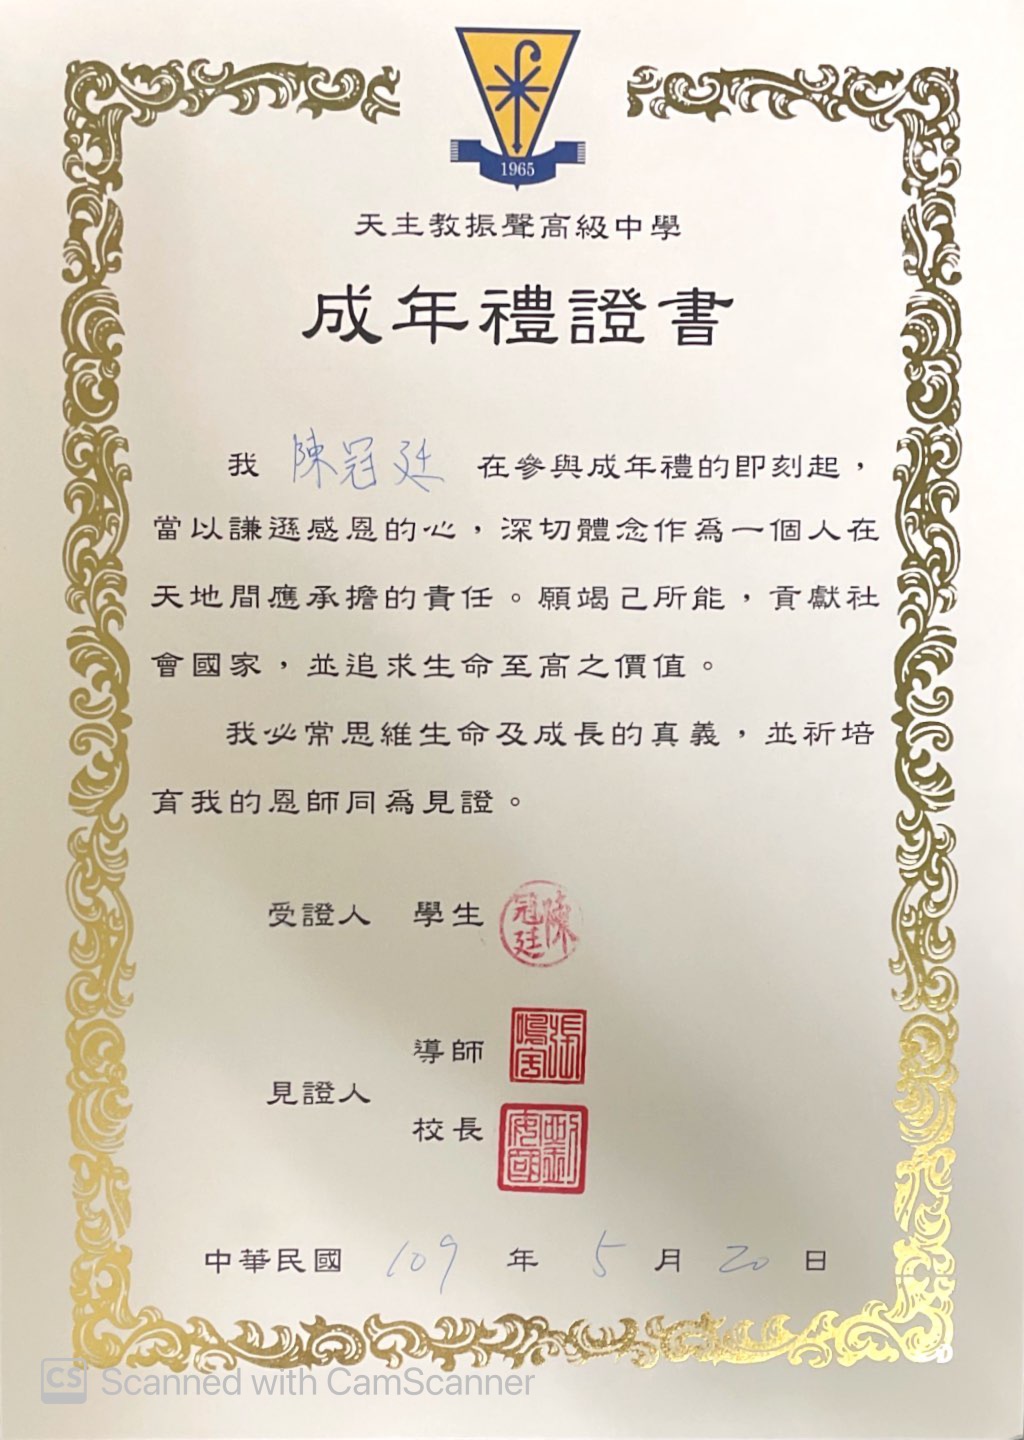 1965
天主教振聲高級中學
成年禮證書
我 陳冠廷 在參與成年禮的即刻起，
當以謙遜感恩的心，深切體念作爲一個人在
天地間應承擔的責任。願竭己所能，貢獻社
會國家，並追求生命至高之價值。
我必常思維生命及成長的真義，並祈培
育我的恩師同爲見證。
受證人 學生 陳冠廷
導師
見證人
校長
中華民國 109 年 5 月 20 日
CS Scanned with CamScanner